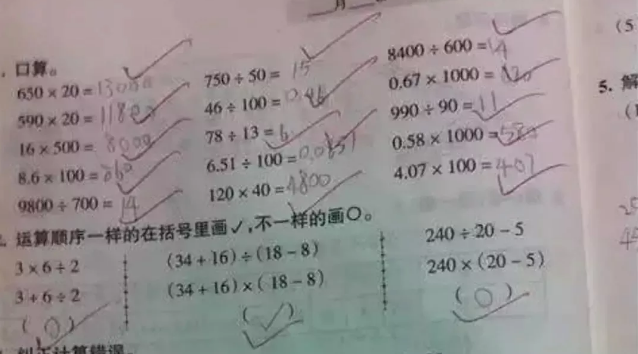 月
口算。
650 × 20 = 13000 750 ÷ 50 = 15 8400 ÷ 600 = 14
590 × 20 = 11800 46 ÷ 100 = 0.46 0.67 × 1000 =
16 × 500 = 8000 78 ÷ 13 = 6 990 ÷ 90 = 11
8.6 × 100 = 860 6.51 ÷ 100 = 0.0651 0.58 × 1000 = 580
9800 ÷ 700 = 14 120 × 40 = 4800 4.07 × 100 = 407
运算顺序一样的在括号里画✓,不一样的画○。
3 × 6 ÷ 2 (34 + 16) ÷ (18 - 8) 240 ÷ 20 - 5
3 + 6 ÷ 2 (34 + 16) × (18 - 8) 240 × (20 - 5)
(○) (✓) (○)
(5
5. 解
(1